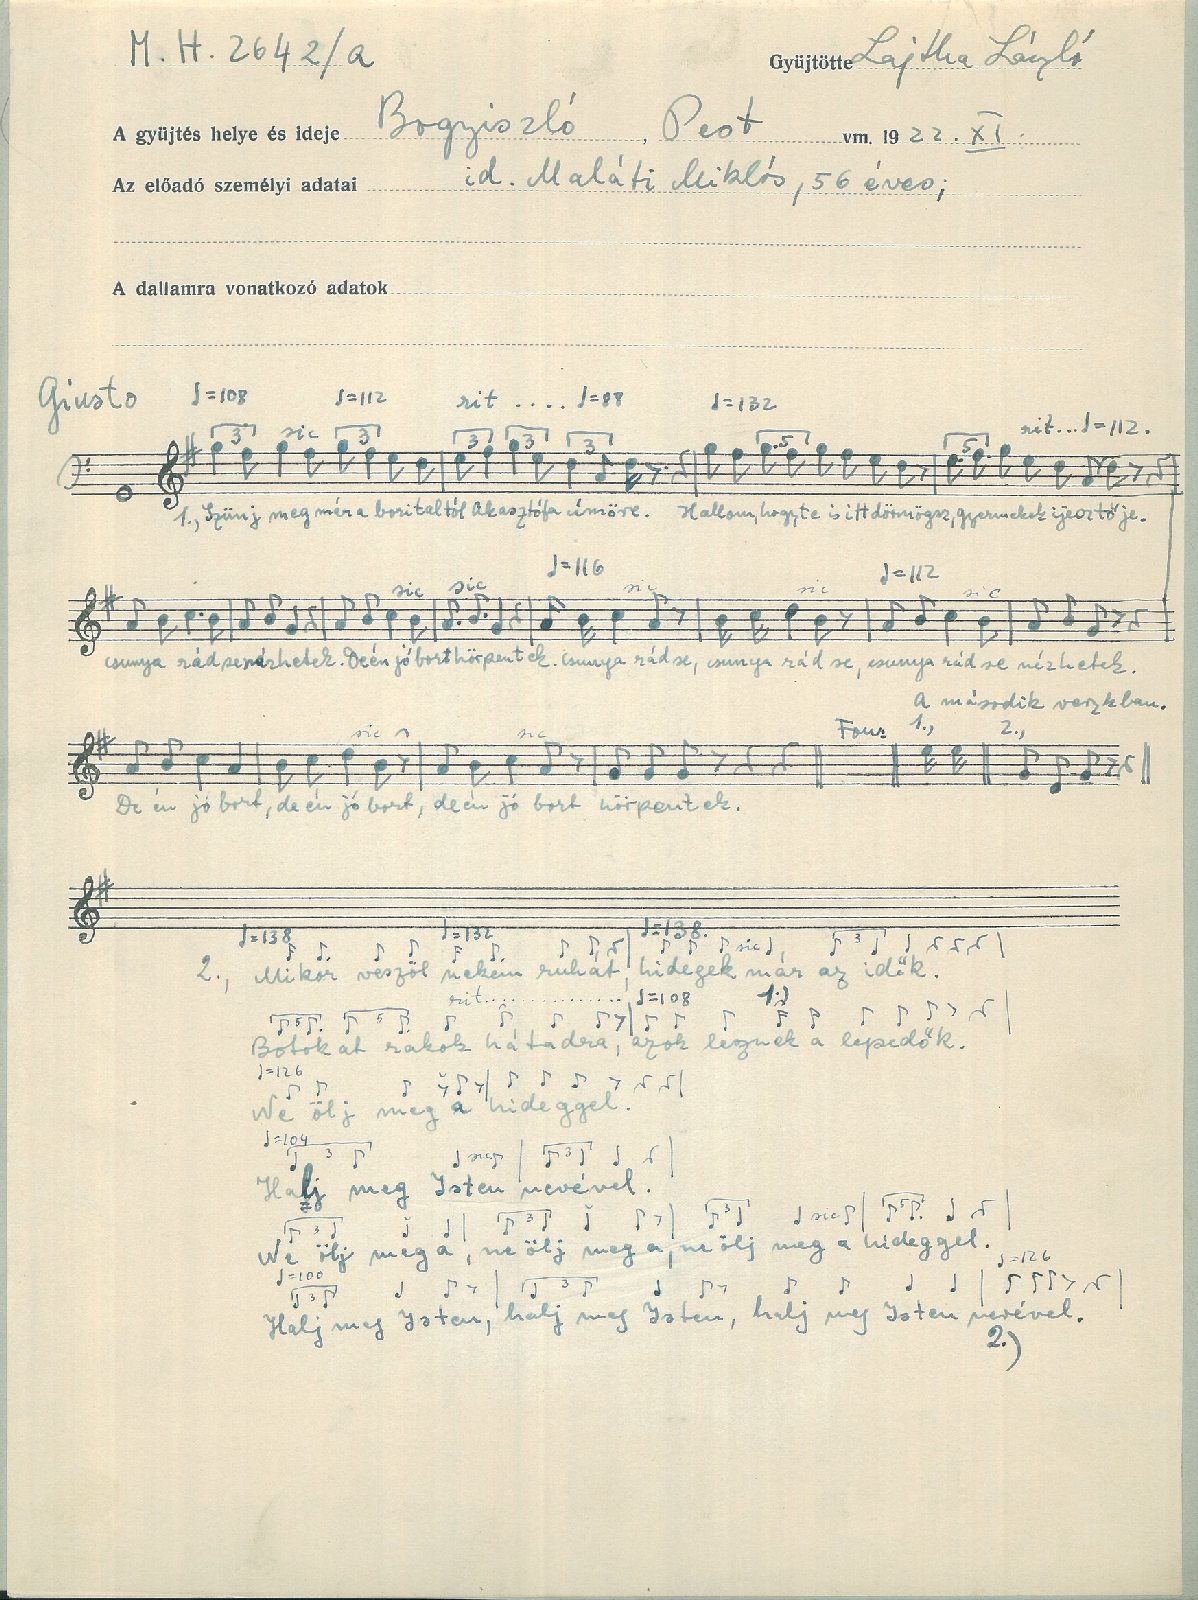 M. H. 2642/a
Gyüjtötte Lajtha László
A gyüjtés helye és ideje Bogyiszló, Pest vm. 1922. XI.
Az előadó személyi adatai id. Maláti Miklós, 56 éves;
A dallamra vonatkozó adatok
Giusto ♩=108 ♩=112 rit .... ♩=88 ♩=132 rit... ♩=112.
3 sic 3 3 3 3 5 5
1., Szünj meg mára boritaltól Akasztófa címöre. Hallom, hogy te is itt dörmögsz, gyermekek ijesztője.
♩=116 ♩=112
sic sic sic sic sic
csunya rád se nézhetek. De én jó bort hörpentek. csunya rád se, csunya rád se, csunya rád se nézhetek.
A második verszkban.
sic sic 1., 2.,
De én jó bort, de én jó bort, de én jó bort hörpentek.
♩=138 ♩=132 ♩=138.
sic 3
2., Mikor veszöl nekem ruhát, hidegek már az idők.
rit............... ♩=108 1.)
5 5
Botokat rakok hátadra, azok lesznek a lepedők.
♩=126
Ne ölj meg a hideggel.
♩=104
3 sic 3
Halj meg Isten nevével.
3 3 3 sic 5
Ne ölj meg a, ne ölj meg a, ne ölj meg a hideggel.
♩=100 ♩=126
3 3
Halj meg Isten, halj meg Isten, halj meg Isten nevével.
2.)